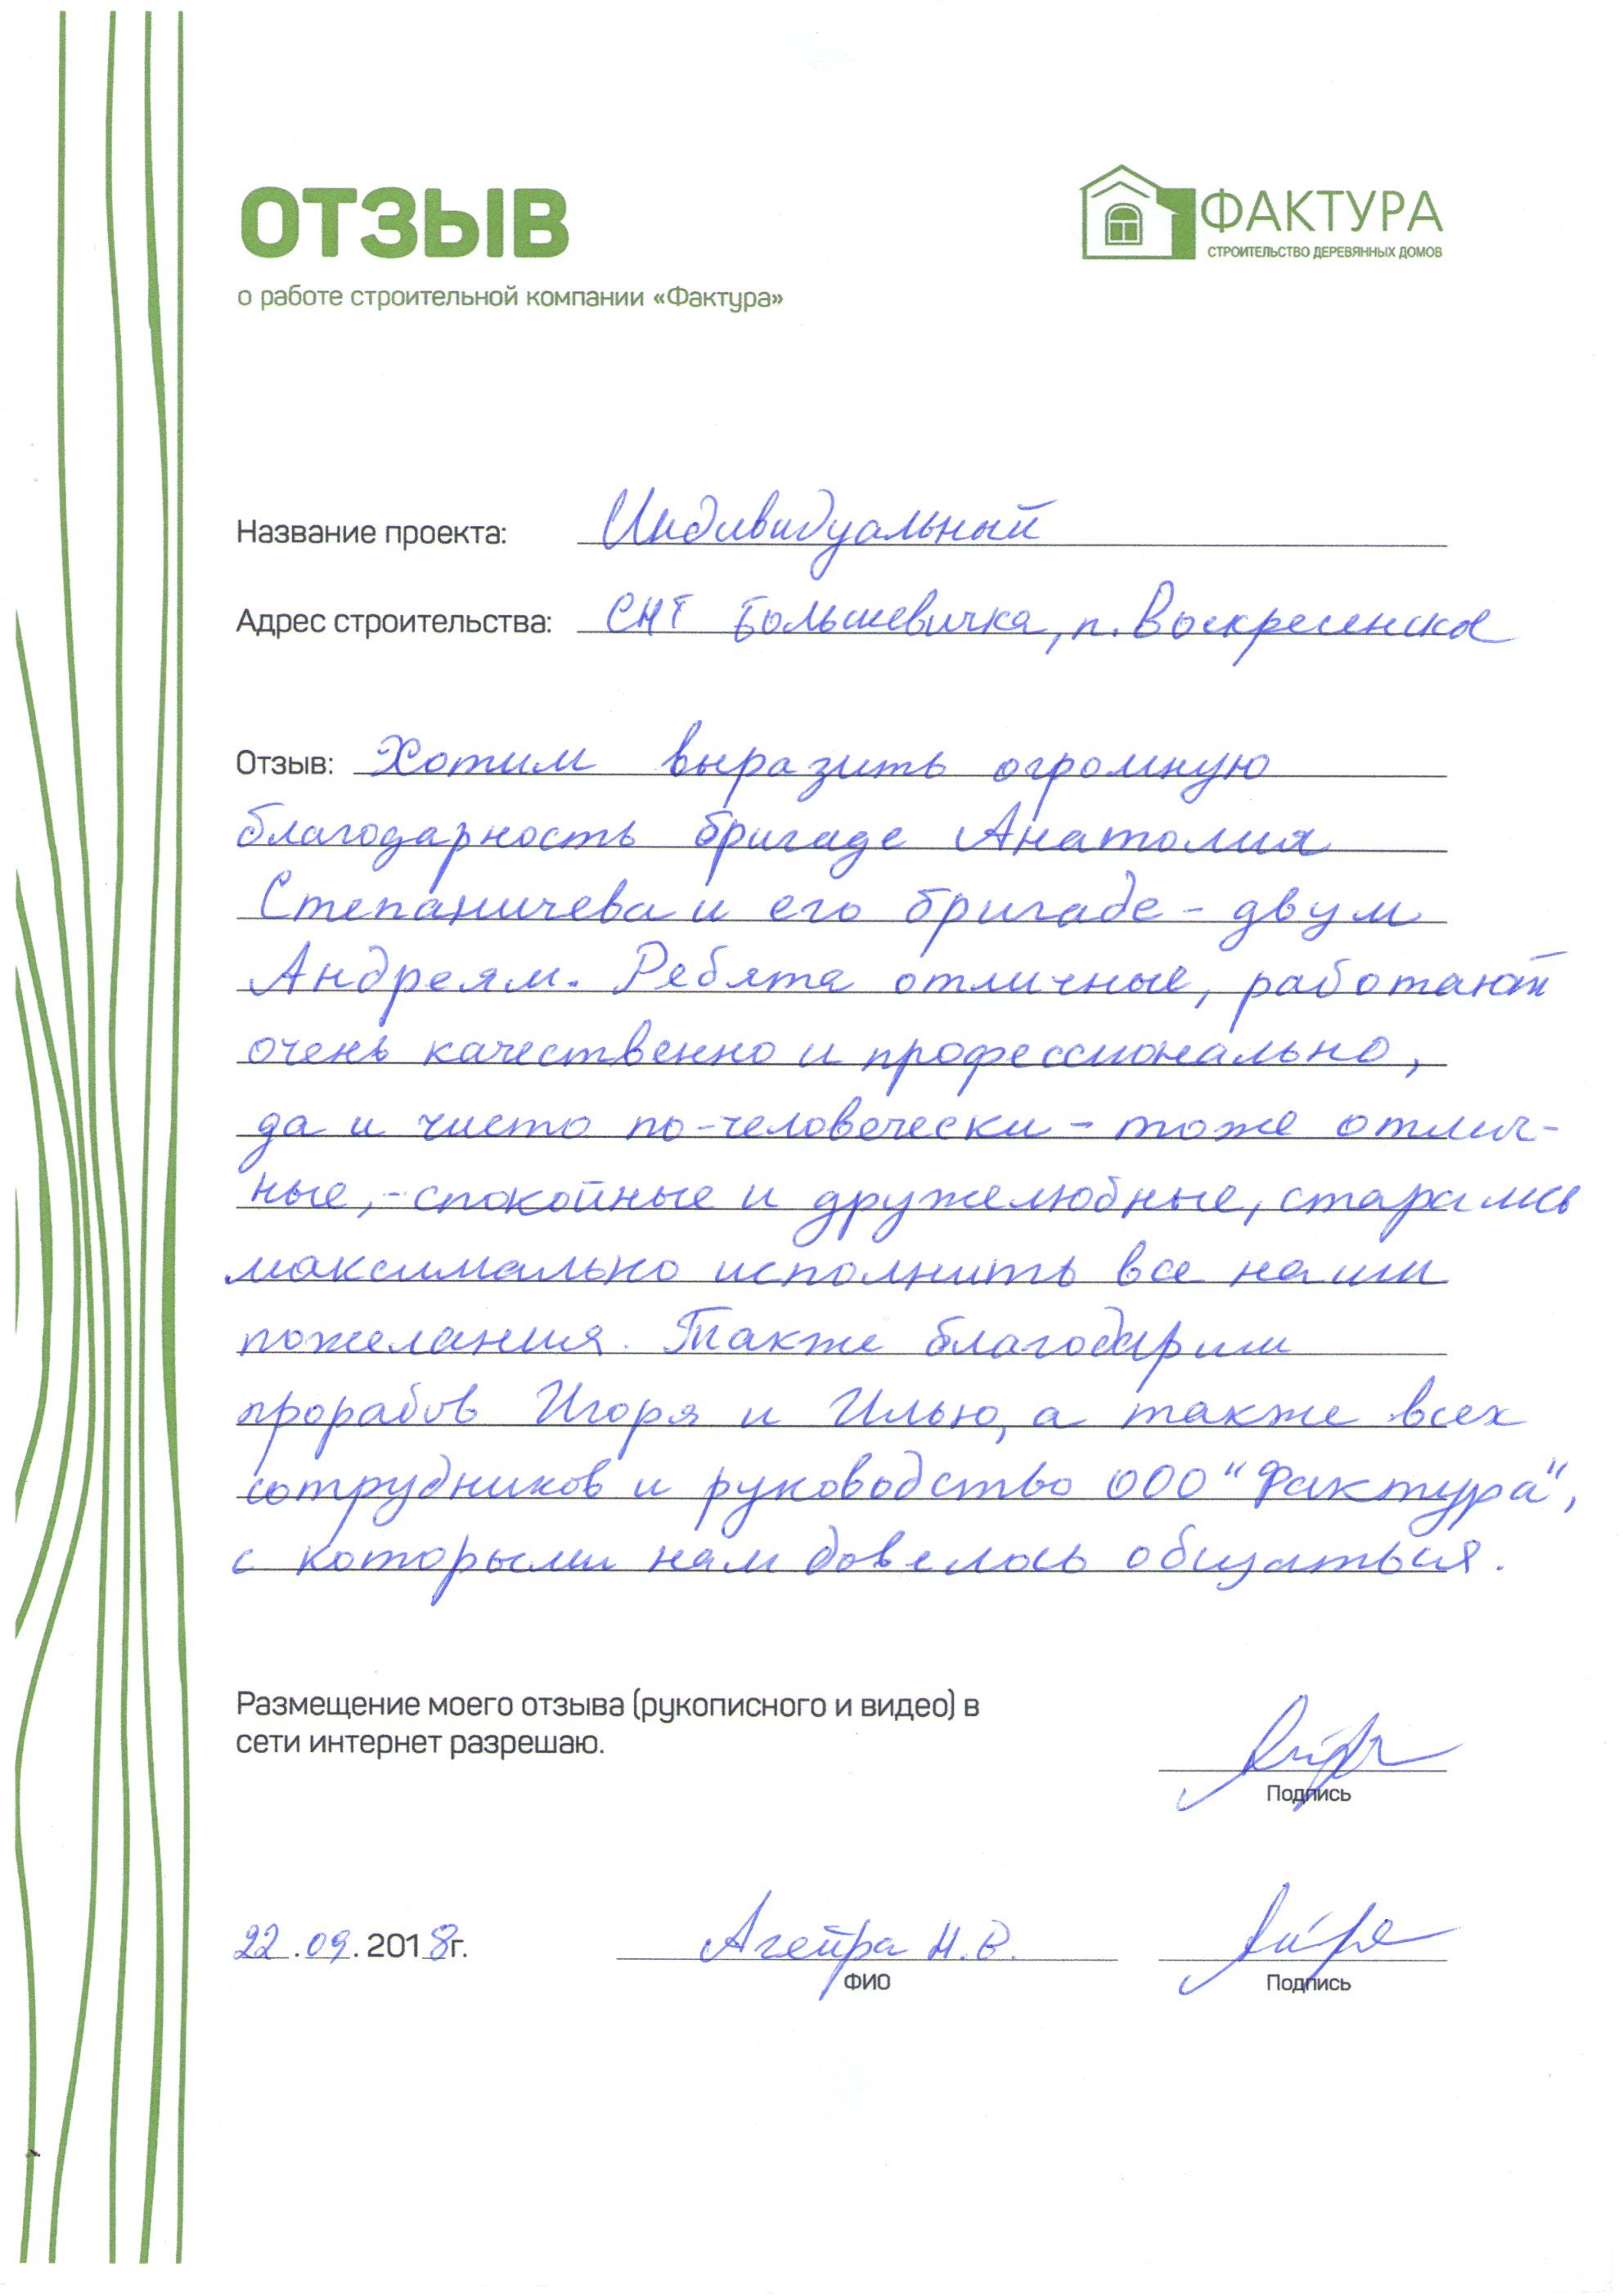 ОТЗЫВ
ФАКТУРА
СТРОИТЕЛЬСТВО ДЕРЕВЯННЫХ ДОМОВ
о работе строительной компании «Фактура»
Название проекта: Индивидуальный
Адрес строительства: СНТ Большевичка, п. Воскресенское
Отзыв: Хотим выразить огромную
благодарность бригаде Анатолия
Степаничева и его бригаде - двум
Андреям. Ребята отличные, работают
очень качественно и профессионально,
да и чисто по-человечески - тоже отлич-
ные, - спокойные и дружелюбные, старались
максимально исполнить все наши
пожелания. Также благодарим
прорабов Игоря и Илью, а также всех
сотрудников и руководство ООО "Фактура",
с которыми нам довелось общаться.
Размещение моего отзыва (рукописного и видео) в
сети интернет разрешаю.
Подпись
22.09.2018г. Н.В.
ФИО
Подпись